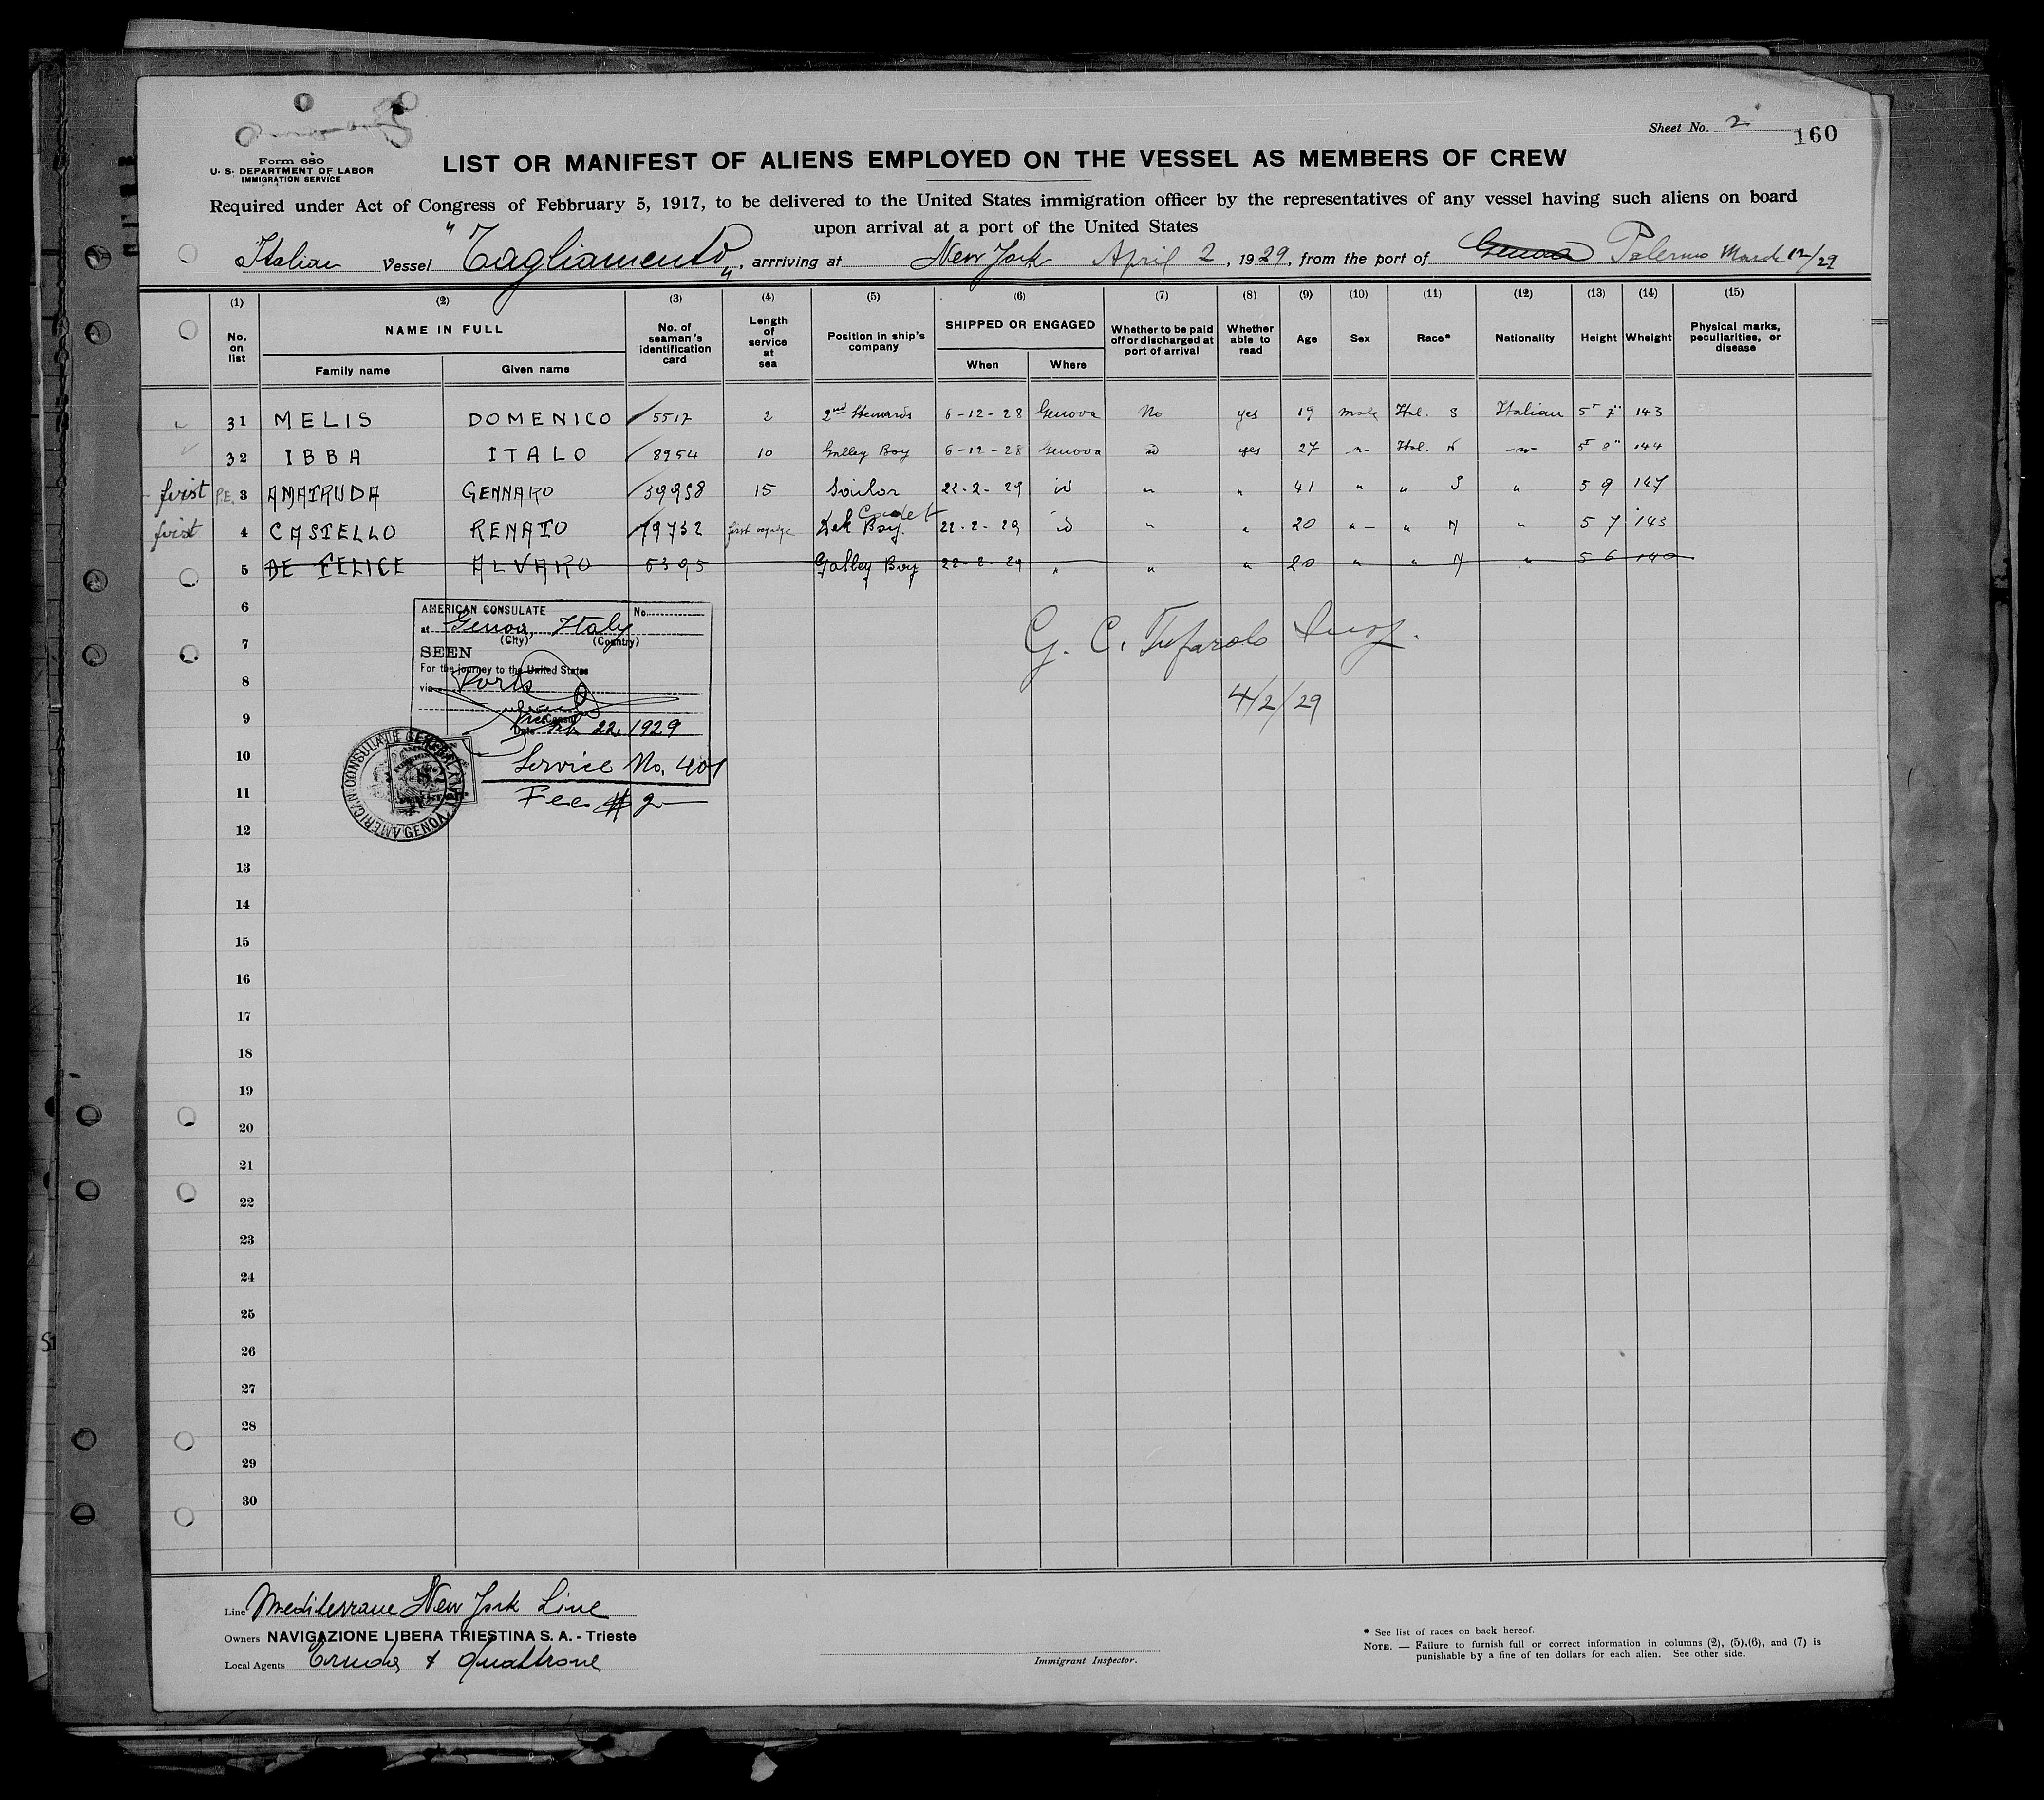 Sheet No. 2
160
Form 680
U. S. DEPARTMENT OF LABOR
IMMIGRATION SERVICE
LIST OR MANIFEST OF ALIENS EMPLOYED ON THE VESSEL AS MEMBERS OF CREW
Required under Act of Congress of Febbruary 5, 1917, to be delivered to the United States immigration officer by the representatives of any vessel having such aliens on board
upon arrival at a port of the United States
Italian Vessel "Tagliamento", arrriving at New York April 2, 1929, from the port of Genova Palermo March 12/29
(1) (2) (3) (4) (5) (6) (7) (8) (9) (10) (11) (12) (13) (14) (15)
No. on list NAME IN FULL Family name Given name No. of seaman's identification card Length of service at sea Position in ship's company SHIPPED OR ENGAGED When Where Whether to be paid off or discharged at port of arrival Whether able to read Age Sex Race* Nationality Height Wheight Physical marks, peculiarities, or disease
31 MELIS DOMENICO 5517 2 2nd Stewards 6-12-28 Genova No yes 19 male Ital. S Italian 5 7" 143
32 IBBA ITALO 8954 10 Galley Boy 6-12-28 Genova id yes 27 -"- Ital. N -"- 5 8" 144
first P.E. 3 AMATRUDA GENNARO 39958 15 Sailor 22-2-29 id " " 41 " " S " 5 9 147
first 4 CASTELLO RENATO 79732 first voyage Dek Boy. Cadet 22-2-29 id " " 20 " - " N " 5 7 143
5 DE FELICE ALVARO 6395 Galley Boy 22-2-29 " " " 20 " " N " 5 6 140
6
7
8
9
10
11
12
13
14
15
16
17
18
19
20
21
22
23
24
25
26
27
28
29
30
AMERICAN CONSULATE No.
at Genoa, Italy
(City) (Country)
SEEN
For the journey to the United States
via Ports
Vice Consul
Date Feb 22, 1929
Service No. 401
Fee $ 2
AMERICAN CONSULATE GENERAL GENOA, ITALY
G. C. Tufarolo Insp.
4/2/29
Line Mediterrane New York Line
Owners NAVIGAZIONE LIBERA TRIESTINA S. A. - Trieste
Local Agents & Quattrone
Immigrant Inspector.
* See list of races on back hereof.
NOTE. — Failure to furnish full or correct information in columns (2), (5),(6), and (7) is
punishable by a fine of ten dollars for each alien. See other side.